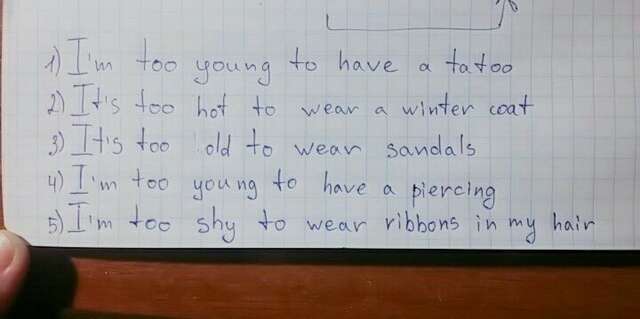 1) I'm too young to have a tatoo
2) It's too hot to wear a winter coat
3) It's too old to wear sandals
4) I'm too young to have a piercing
5) I'm too shy to wear ribbons in my hair